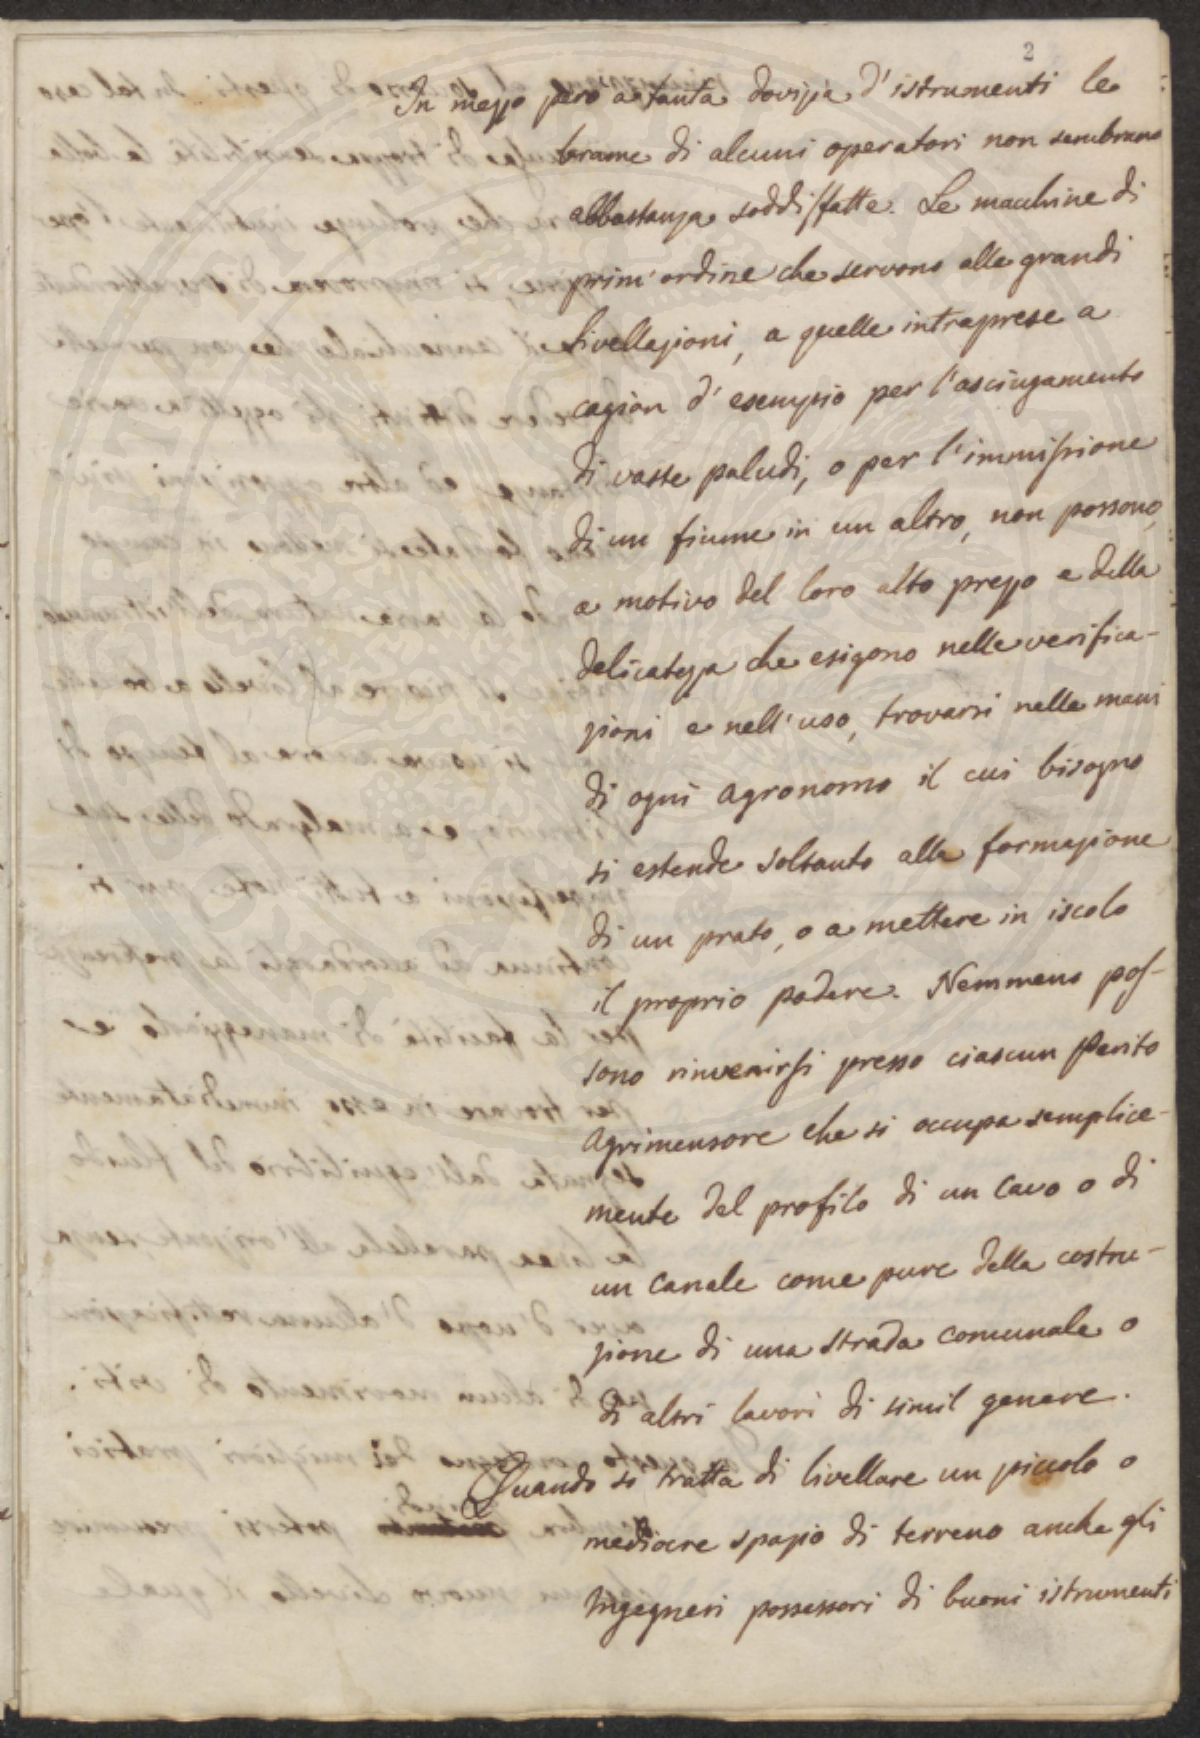 2
In mezzo però a tanta dovizia d'istrumenti le
brame di alcuni operatori non sembrano
abbastanza soddisfatte. Le macchine di
prim'ordine che servono alle grandi
livellazioni, a quelle intraprese a
cagion d'esempio per l'asciugamento
di vaste paludi, o per l'immissione
di un fiume in un altro, non possono,
a motivo del loro alto prezzo e della
delicatezza che esigono nelle verifica-
zioni e nell'uso, trovarsi nelle mani
di ogni agronomo il cui bisogno
si estende soltanto alla formazione
di un prato, o a mettere in iscolo
il proprio podere. Nemmeno pos-
sono rinvenirsi presso ciascun Perito
Agrimensore che si occupa semplice-
mente del profilo di un cavo o di
un canale come pure della costru-
zione di una strada comunale o
di altri lavori di simil genere.
Quando si tratta di livellare un piccolo o
mediocre spazio di terreno anche gli
Ingegneri possessori di buoni istrumenti